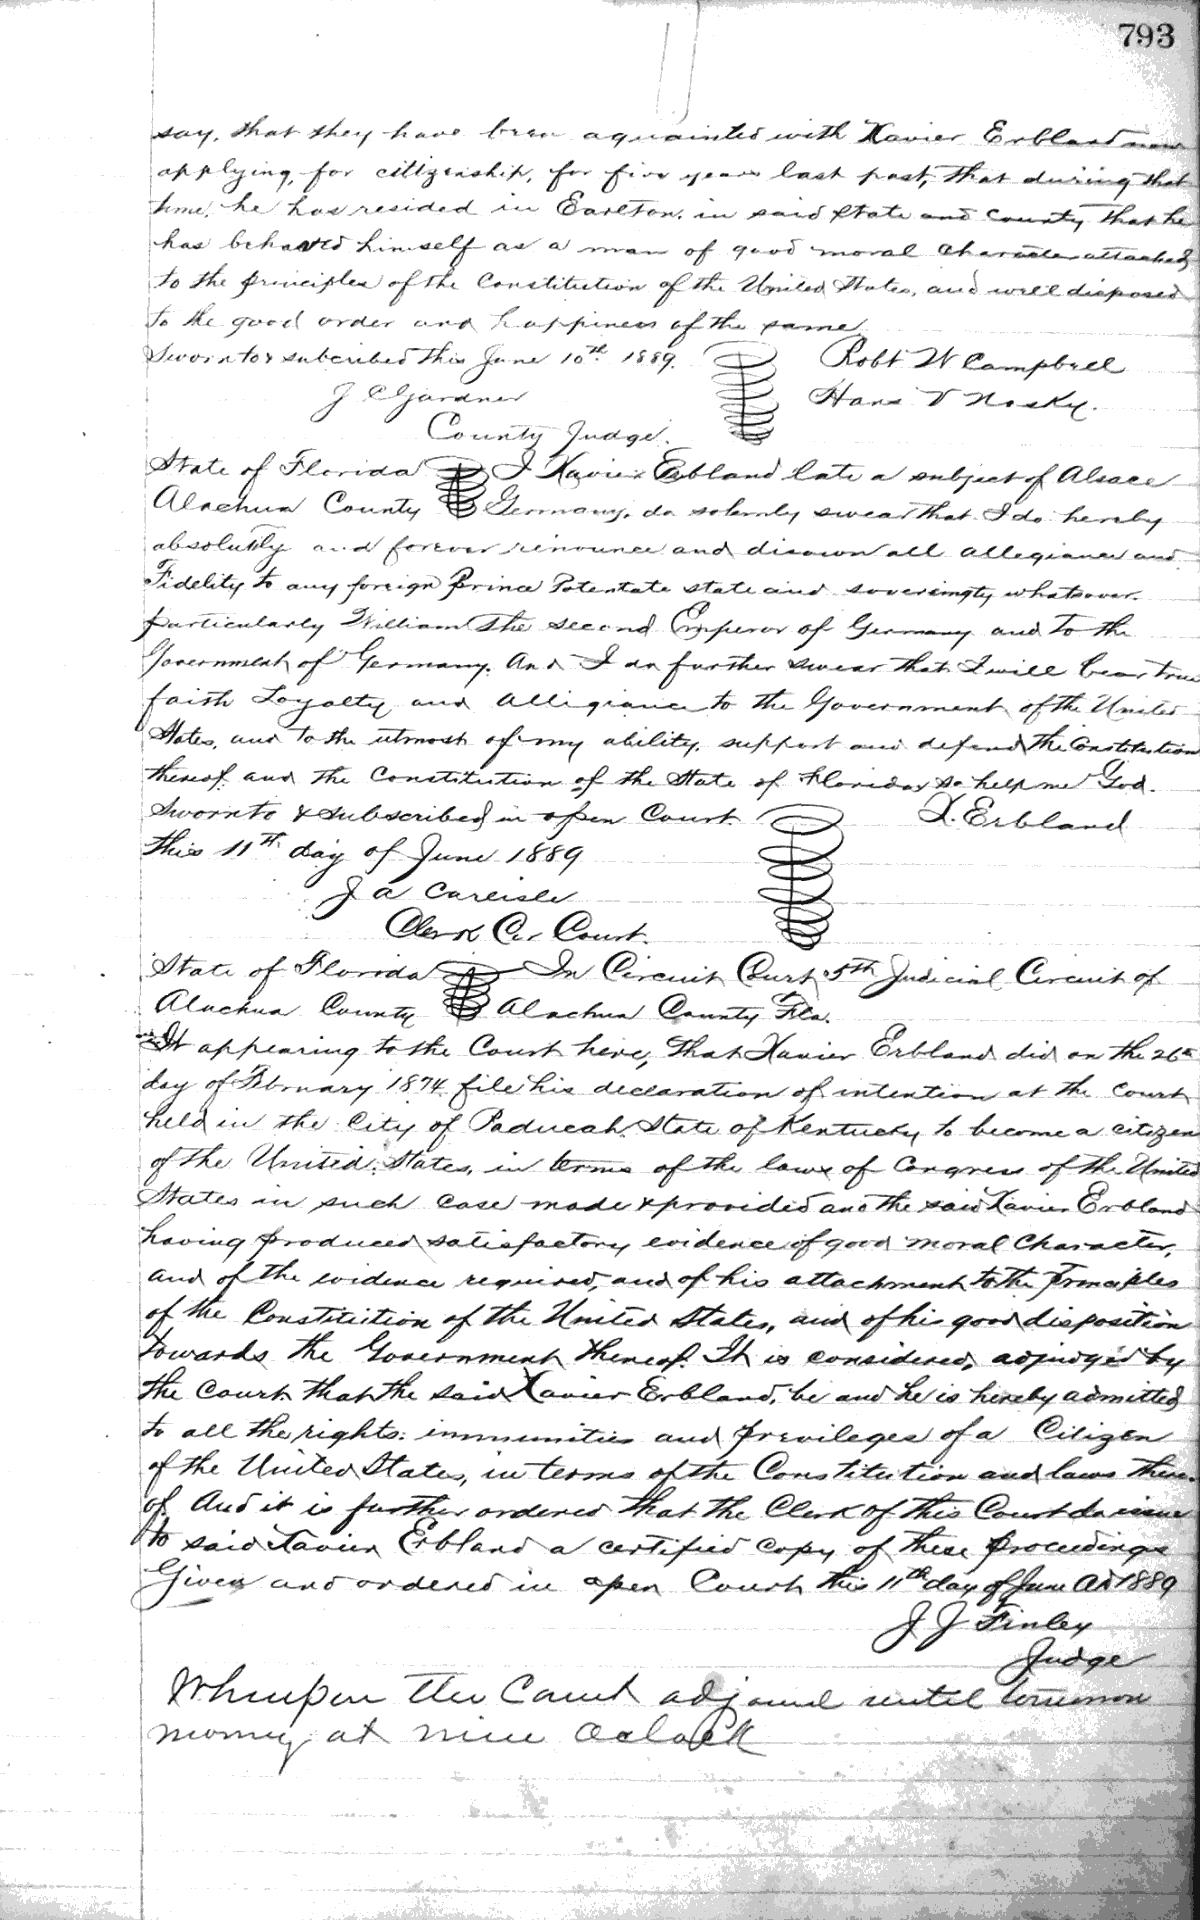 793
say, that they have been aquainted with Xavier Erbland now
applying, for citizenship, for five years last past, that during that
time, he has resided in Earlton, in said State and County, that he
has behaved himself as a man of good moral character attached
to the principles of the Constitution of the United States, and well disposed
to the good order and happiness of the same
Sworn to & subcribed this June 10th 1889. Robt W Campbell
J C Gardner Hans V
County Judge.
State of Florida I Xavier Erbland late a subject of Alsace
Alachua County Germany, do solemly swear that I do hereby
absolutly and forever renounce and disown all allegiance and
Fidelity to any foreign Prince Potentate state and whatsoever.
particularly William the second Emperor of Germany and to the
Government of Germany. And I do further swear that I will bear true
faith Loyalty and Alligiance to the Government of the United
States, and to the utmost of my ability, support and defend the Constitution
thereof and the Constitution of the State of Florida, so help me God.
Sworn to & subscribed in open Court. X. Erbland
this 11th day of June 1889
J A Carlisle
Clerk Cir Court.
State of Florida In Circuit Court 5th Judicial Circuit of
Alachua County Alachua County Fla.
It appearing to the Court here, that Xavier Erbland did on the 26th
day of February 1874 file his declaration of intention at the court
held in the City of Paducah State of Kentucky to become a citizen
of the United States, in terms of the laws of Congress of the United
States in such case made & provided and the said Xavier Erbland
having produced satisfactory evidence of good moral Character,
and of the evidence required, and of his attachment to the Principles
of the Constitution of the United States, and of his good disposition
towards the Government thereof. It is considered, adjudged by
the Court that the said Xavier Erbland, be and he is hereby admitted
to all the rights, immunities and previleges of a Citizen
of the United States, in terms of the Constitution and laws there-
of. And it is further ordered that the Clerk of this Court do issue
to said Xavier Erbland a certified copy of these proceedings
Given and ordered in open Court this 11th day of June AD 1889
J J Finley
Judge
Whereupon the Court adjourned until tomorrow
morning at nine Oclock